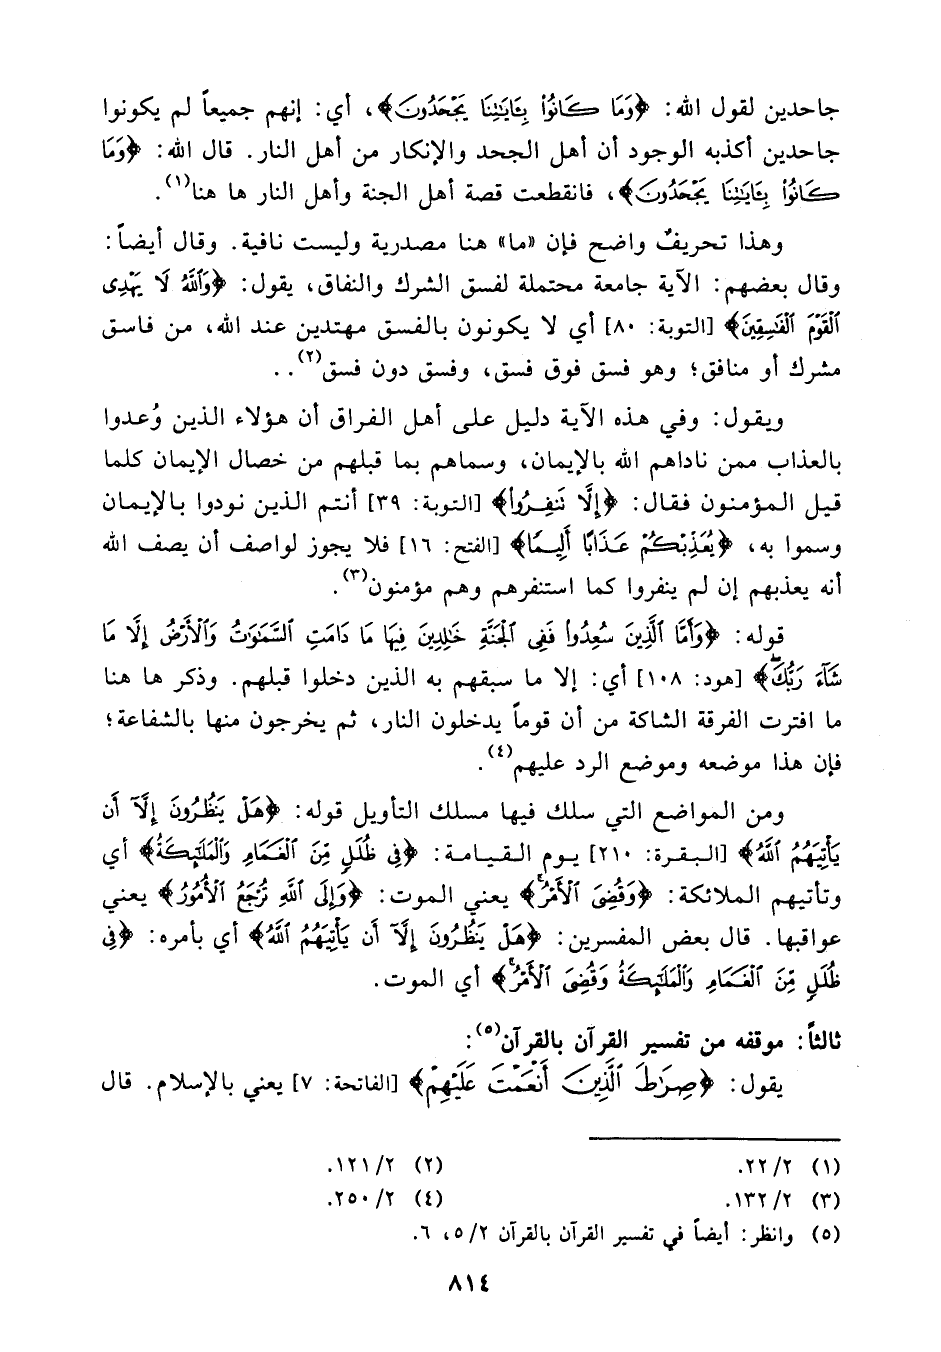 جاحدين لقول الله: ﴿وَمَا كَانُوا۟ بِـَٔايَـٰتِنَا يَجْحَدُونَ﴾، أي: إنهم جميعاً لم يكونوا
جاحدين أكذبه الوجود أن أهل الجحد والإنكار من أهل النار. قال الله: ﴿وَمَا
كَانُوا۟ بِـَٔايَـٰتِنَا يَجْحَدُونَ﴾، فانقطعت قصة أهل الجنة وأهل النار ها هنا(١).
وهذا تحريفٌ واضح فإن «ما» هنا مصدرية وليست نافية. وقال أيضاً:
وقال بعضهم: الآية جامعة محتملة لفسق الشرك والنفاق، يقول: ﴿وَٱللَّهُ لَا يَهْدِى
ٱلْقَوْمَ ٱلْفَـٰسِقِينَ﴾ [التوبة: ٨٠] أي لا يكونون بالفسق مهتدين عند الله، من فاسق
مشرك أو منافق؛ وهو فسق فوق فسق، وفسق دون فسق(٢). .
ويقول: وفي هذه الآية دليل على أهل الفراق أن هؤلاء الذين وُعدوا
بالعذاب ممن ناداهم الله بالإيمان، وسماهم بما قبلهم من خصال الإيمان كلما
قيل المؤمنون فقال: ﴿إِلَّا تَنفِرُوا۟﴾ [التوبة: ٣٩] أنتم الذين نودوا بالإيمان
وسموا به، ﴿يُعَذِّبْكُمْ عَذَابًا أَلِيمًا﴾ [الفتح: ١٦] فلا يجوز لواصف أن يصف الله
أنه يعذبهم إن لم ينفروا كما استنفرهم وهم مؤمنون(٣).
قوله: ﴿وَأَمَّا ٱلَّذِينَ سُعِدُوا۟ فَفِى ٱلْجَنَّةِ خَـٰلِدِينَ فِيهَا مَا دَامَتِ ٱلسَّمَـٰوَٰتُ وَٱلْأَرْضُ إِلَّا مَا
شَآءَ رَبُّكَ﴾ [هود: ١٠٨] أي: إلا ما سبقهم به الذين دخلوا قبلهم. وذكر ها هنا
ما افترت الفرقة الشاكة من أن قوماً يدخلون النار، ثم يخرجون منها بالشفاعة؛
فإن هذا موضعه وموضع الرد عليهم(٤).
ومن المواضع التي سلك فيها مسلك التأويل قوله: ﴿هَلْ يَنظُرُونَ إِلَّآ أَن
يَأْتِيَهُمُ ٱللَّهُ﴾ [البقرة: ٢١٠] يوم القيامة: ﴿فِى ظُلَلٍ مِّنَ ٱلْغَمَامِ وَٱلْمَلَـٰٓئِكَةُ﴾ أي
وتأتيهم الملائكة: ﴿وَقُضِىَ ٱلْأَمْرُ﴾ يعني الموت: ﴿وَإِلَى ٱللَّهِ تُرْجَعُ ٱلْأُمُورُ﴾ يعني
عواقبها. قال بعض المفسرين: ﴿هَلْ يَنظُرُونَ إِلَّآ أَن يَأْتِيَهُمُ ٱللَّهُ﴾ أي بأمره: ﴿فِى
ظُلَلٍ مِّنَ ٱلْغَمَامِ وَٱلْمَلَـٰٓئِكَةُ وَقُضِىَ ٱلْأَمْرُ﴾ أي الموت.
ثالثاً: موقفه من تفسير القرآن بالقرآن(٥):
يقول: ﴿صِرَٰطَ ٱلَّذِينَ أَنْعَمْتَ عَلَيْهِمْ﴾ [الفاتحة: ٧] يعني بالإسلام. قال
(١) ٢/ ٢٢. (٢) ٢/ ١٢١.
(٣) ٢/ ١٣٢. (٤) ٢/ ٢٥٠.
(٥) وانظر: أيضاً في تفسير القرآن بالقرآن ٢/ ٥، ٦.
٨١٤